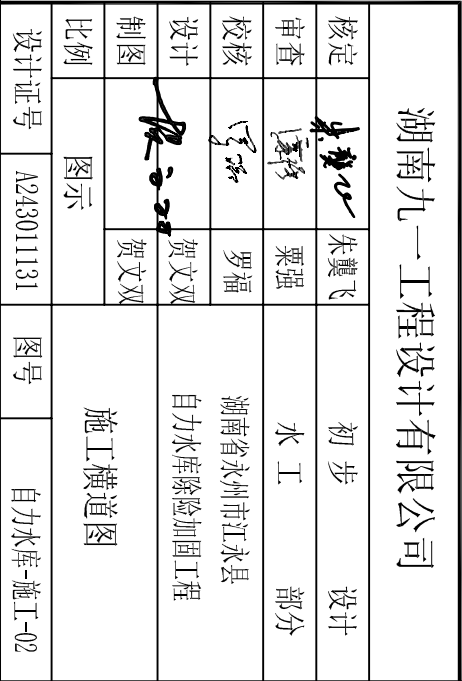 湖南九一工程设计有限公司
核定 朱龑飞 初步 设计
审查 粟强 水工 部分
校核 罗福 湖南省永州市江永县
设计 贺文双 自力水库除险加固工程
制图 贺文双 施工横道图
比例 图示
设计证号 A243011131 图号 自力水库-施工-02